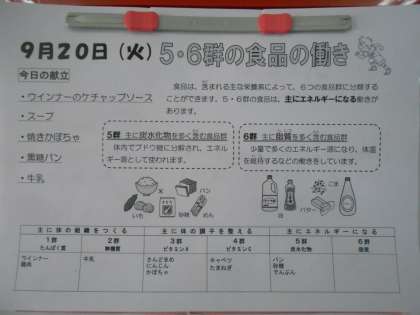 9月20日(火) 5・6群の食品の働き
今日の献立
・ウインナーのケチャップソース
・スープ
・焼きかぼちゃ
・黒糖パン
・牛乳
食品は、含まれる主な栄養素によって、6つの食品群に分類する
ことができます。5・6群の食品は、主にエネルギーになる働きが
あります。
5群 主に炭水化物を多く含む食品群
体内でブドウ糖に分解され、エネル
ギー源として使われます。
6群 主に脂質を多く含む食品群
少量で多くのエネルギー源になり、体温
を維持するなどの働きをしています。
米
パン
いも
砂糖
めん
油
バター
ごま
主に体の組織をつくる
主に体の調子を整える
主にエネルギーになる
1群
たんぱく質
2群
無機質
3群
ビタミンA
4群
ビタミンC
5群
炭水化物
6群
脂質
ウインナー
牛乳
さんどまめ
にんじん
かぼちゃ
キャベツ
たまねぎ
パン
砂糖
でんぷん